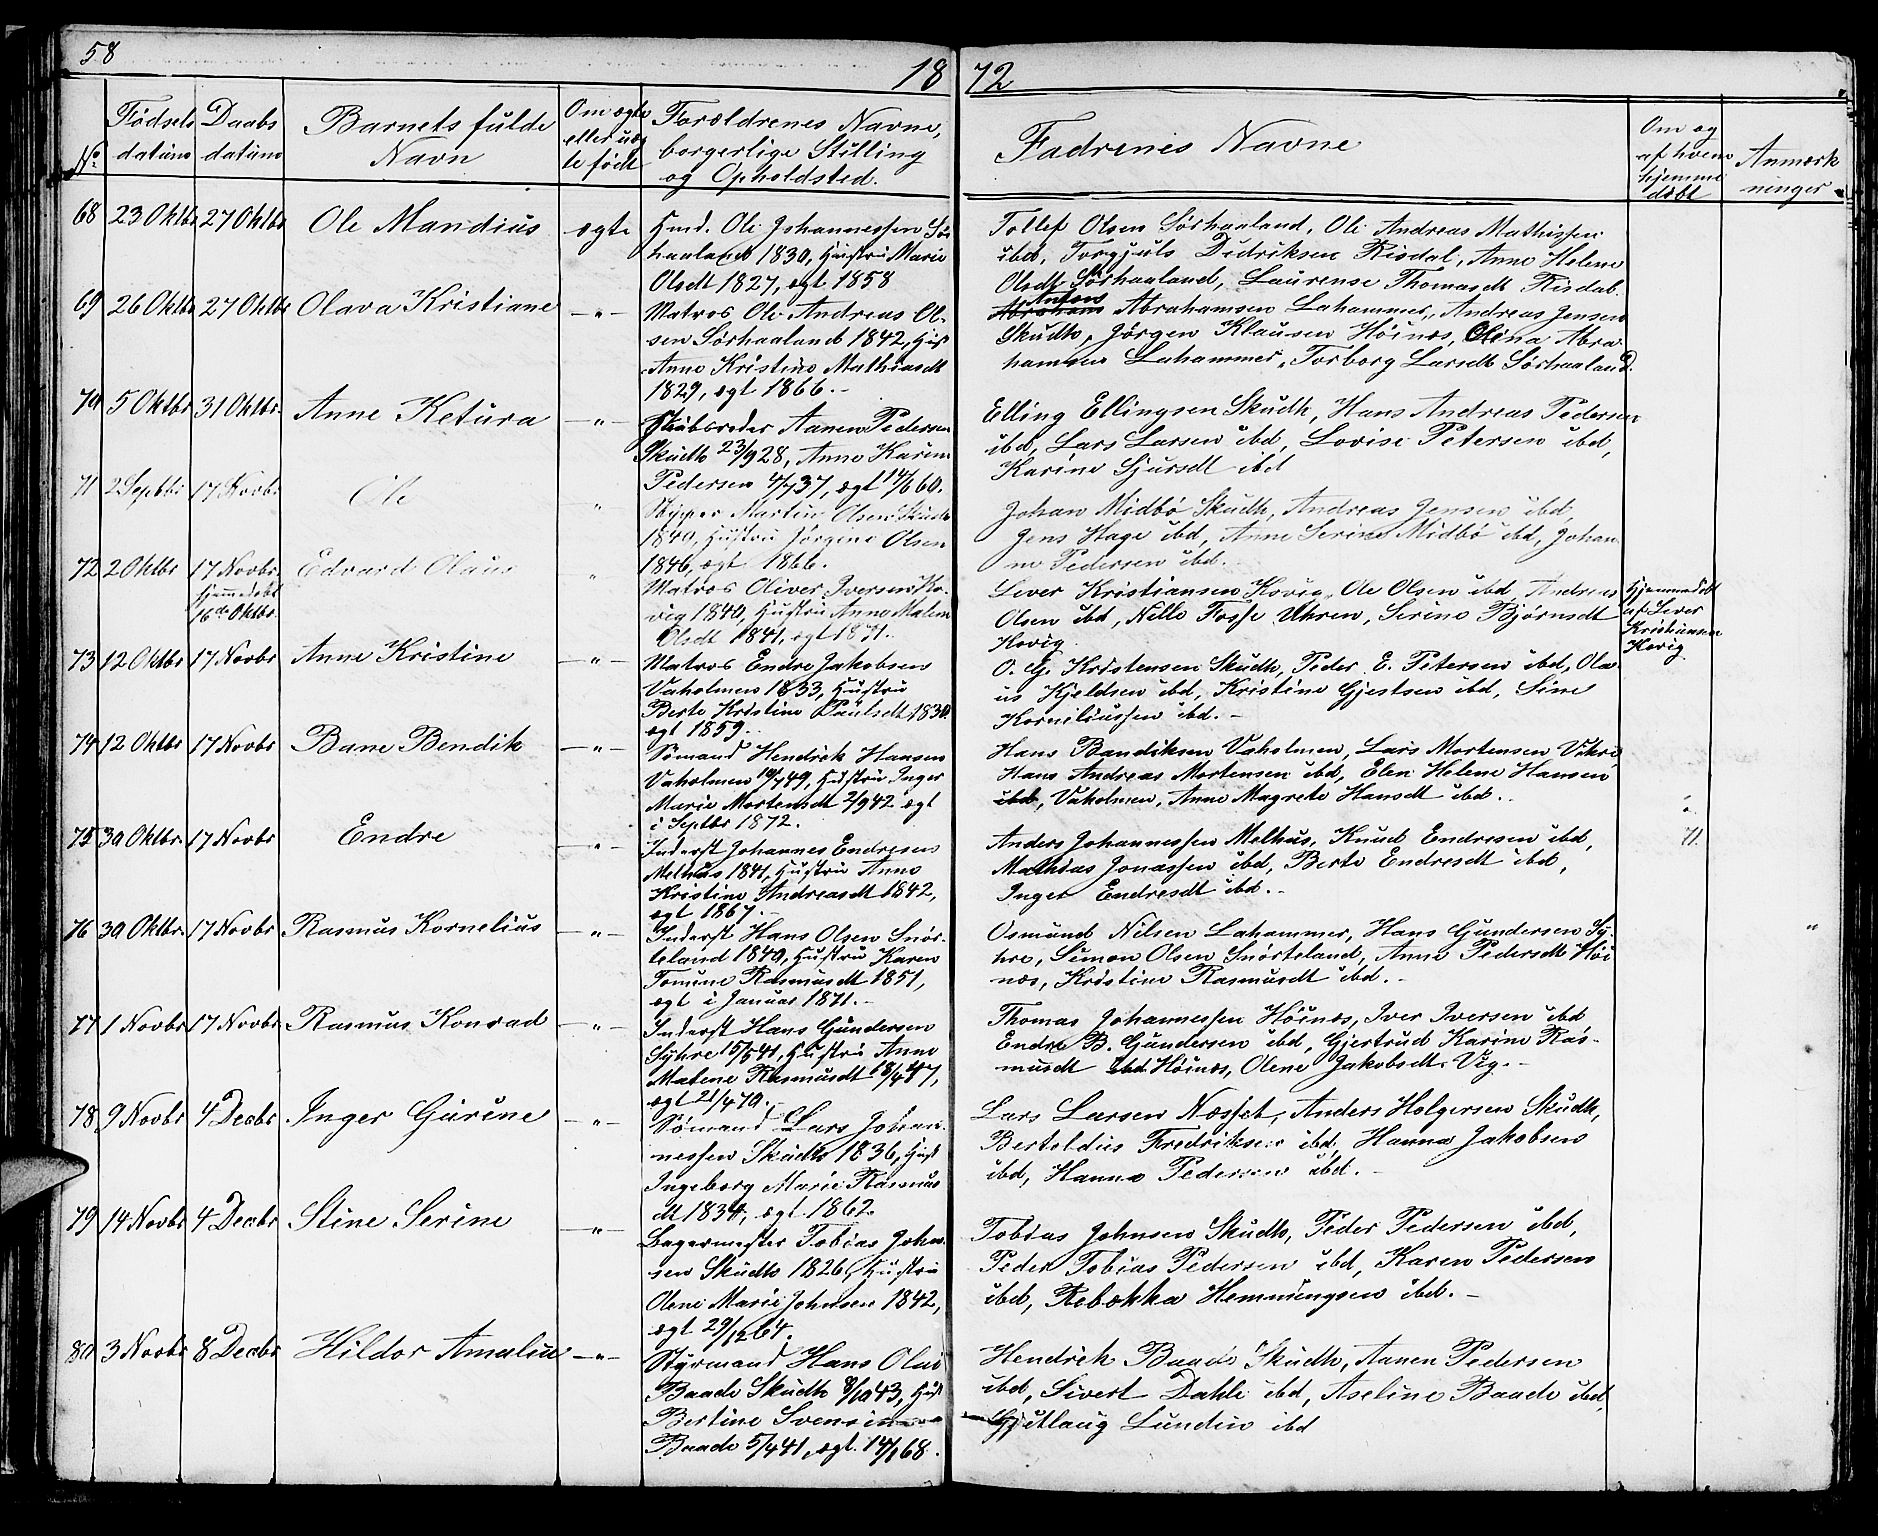 58
18 72
No.
Fødsels datum
Daabs datum
Barnets fulde Navn
Om ægte eller uægte født
Forældrenes Navne, borgerlige Stilling og Opholdsted.
Fadrenes Navne
Om og af hvem hjemmedøbt
Anmærkninger
68 23 Oktbr 27 Oktbr Ole Mandius ægte
Hmd. Ole Johannessen Sør
haaland 1830, Hustru Marie
Olsdt 1827, ægt 1858
Tollef Olsen Sørhaaland, Ole Andreas Mathissen
ibd, Torgjuls Didriksen Risdal, Anne Helene
Olsdt Sørhaaland, Laurense Thomasdt Risdal.
69 26 Oktbr 27 Oktbr Olava Kristiane –"–
Matros Ole Andreas Ol-
sen Sørhaaland 1842, Hust
Anne Kristine Mathiasdt
1829, ægt 1866.-
Antons
Abraham Abrahamsen Lahammer, Andreas Jensen
Skudh, Jørgen Klausen Høinæs, Olina Abra
hamsen Lahammer, Torborg Larsdt Sørhaaland.
70 5 Oktbr 31 Oktbr. Anne Ketura –"–
Aanen Pedersen
Skudh 23/9 28, Anne Karine
Pedersen 4/7 37, ægt 14/6 60.
Elling Ellingsen Skudh, Hans Andreas Pedersen
ibd, Lars Larsen ibd, Lovise Petersen ibd,
Karine Sjursdt ibd
71 2 Septbr 17 Novbr Ole "
Skipper Martin Olsen Skudh
1840, Hustru Jørgine Olsen
1846, ægt 1866.
Johan Midbø Skudh, Andreas Jensen ibd,
Jens Hage ibd, Anne Serine Midbø ibd, Johan
ne Pedersen ibd.
72 2 Oktbr 17 Novbr. Edvard Olaus "
hjemmedøbt
16de Oktbr.
Matros Oliver Iversen Ho-
vig 1840, Hustru Anne Malene
Olsdt 1841, ægt 1871.
Sever Kristiansen Hovig, Ole Olsen ibd, Andreas
Olsen ibd, Nille Tosse Uhren, Serine Bjørnsdt
Hovig.
Hjemmedøbt
af Sever
Kristiansen
Hovig
73 12 Oktbr 17 Novbr Anne Kristine –"–
Matros Endre Jakobsen
Vaholmen 1833, Hustru
Berte Kristine Paulsdt 1830
ægt 1859.
O. G. Kristensen Skudh, Peder E. Petersen ibd, Ola-
us Kjeldsen ibd, Kristine Gjestsen ibd, Sine
Korneliussen ibd.-
74 12 Oktbr 17 Novbr Bane Bendik –"–
Sømand Hendrik Hansen
Vaholmen 19/7 49, Hustru Inger
Marie Mortensdt 2/9 42 ægt
i Septbr 1872.
Hans Bandiksen Vaholmen, Lars Mortensen Vikre
Hans Andreas Mortensen ibd, Elen Helene Hansen
ibd, Vaholmen, Anne Magrete Hansdt ibd.
75 30 Oktbr. 17 Novbr Endre –"–
Inderst Johannes Endresen
Melhus 1841, Hustru Anne
Kristine Andreasdt 1842,
ægt 1867.
Anders Johannessen Melhus, Knud Endresen ibd,
Mathias Jonassen ibd, Berte Endresdt ibd,
Inger Endresdt ibd.-
71.
76 30 Oktbr. 17 Novbr Rasmus Kornelius –"–
Inderst Hans Olsen Snør-
teland 1840, Hustru Karen
Tomine Rasmusdt 1851,
ægt i Januar 1871.-
Osmund Nilsen Lahammer, Hans Gundersen Sy-
hre, Simon Olsen Snørteland, Anne Pedersdt Høi
næs, Kristine Rasmusdt ibd.-
"
77 1 Novbr 17 Novbr. Rasmus Konrad –"–
Inderst Hans Gundersen
Syhre 15/5 41, Hustru Anne
Malene Rasmusdt 18/4 47,
ægt 21/4 70.
Thomas Johannessen Høinæs, Iver Iversen ibd
Endre B. Gundersen ibd, Gjertrud Karine Ras-
musdt ibd Høinæs, Olene Jakobsdt Vig.-
78 9 Novbr 4 Decbr Inger Gurine –"–
Sømand Lars Johan-
nessen Skudh 1836, Hust
Ingeborg Marie Rasmus
dt 1834, ægt 1862.
Lars Larsen Næsset, Anders Holgersen Skudh,
Bertoldus Fredriksen ibd, Hanna Jakobsen
ibd, Hanna Pedersen ibd.-
79 14 Novbr 4 Decbr Stine Serine –"–
Bagermester Tobias John-
sen Skudh 1826, Hustru
Olene Marie Johnsen 1842,
ægt 29/12 64.
Tobias Johnsen Skudh, Peder Pedersen ibd,
Peder Tobias Pedersen ibd, Karen Pedersen
ibd, Rebekka Hemmingsen ibd.-
80 3 Novbr 8 Decbr Hildor Amalia –"–
Styrmand Hans Olai
Baade Skudh 8/10 43, Hust
Bertine Svensine
Baade 5/4 41, ægt. 14/1 68.
Hendrik Baade Skudh, Aanen Pedersen
ibd, Sivert Dahle ibd, Aseline Baade ibd,
Gjutlaug Lundin ibd